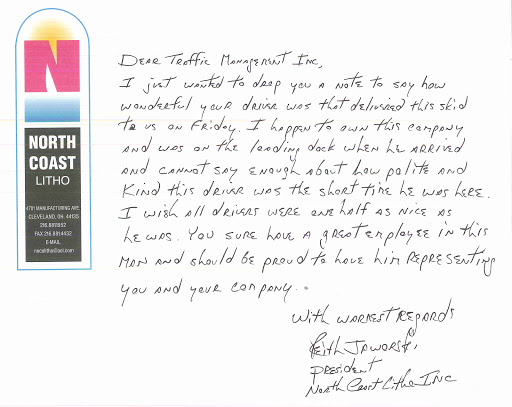 N
NORTH
COAST
LITHO
4701 MANUFACTURING AVE.
CLEVELAND, OH. 44135
E-MAIL
Dear Traffic Management Inc,
I just wanted to drop you a note to say how
wonderful your driver was that delivered this skid
to us on Friday. I happen to own this company
and was on the loading dock when he arrived
and cannot say enough about how polite and
kind this driver was the short time he was here.
I wish all drivers were one half as nice as
he was. You sure have a great employee in this
man and should be proud to have him representing
you and your company..
With warmest regards
Keith Jaworski
President
North Coast Litho Inc